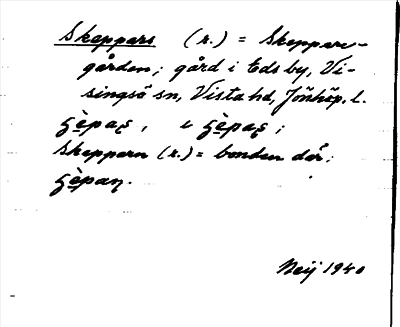 Skeppars (r.) = Skeppare-
gården; gård i Edsby, Vi-
singsö sn, Vista hd, Jönköp. l.
Skeppern (r.) = bonden där:
Neij 1940